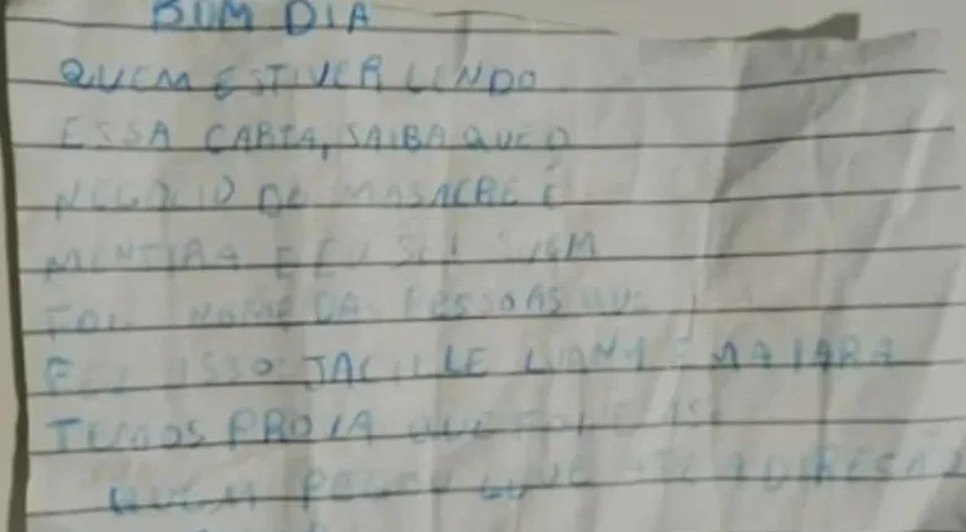 BOM DIA
QUEM ESTIVER LENDO
ESSA CARTA, SAIBA QUE O
NEGOCIO DE MASACRE É
MENTIRA E EU SEI QUEM
FOI NOME DAS PESSOAS QUE
FEZ ISSO JACIELE LIANA E MAIARA
TEMOS PROVA QUE
QUEM